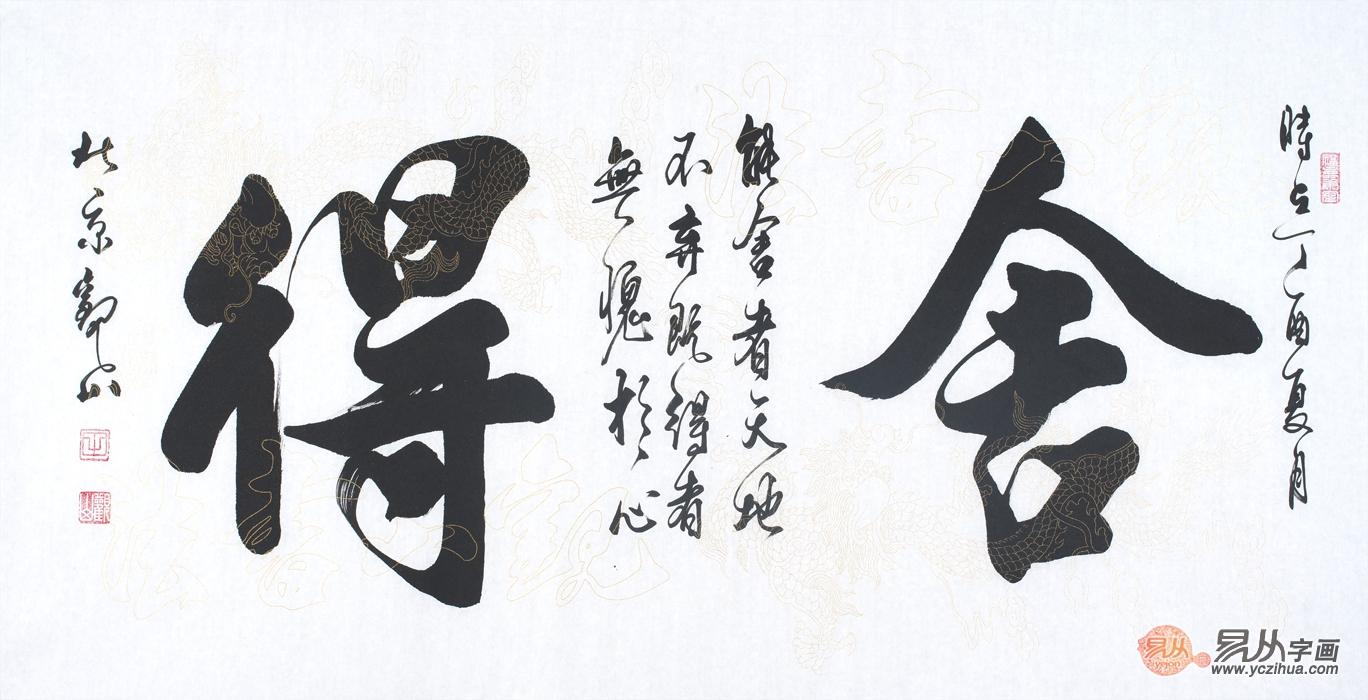 時在丁酉夏月
舍
能舍者天地
不弃既得者
無愧於心
得
北京觀山
觀山
易从
易从字画
www.yczihua.com